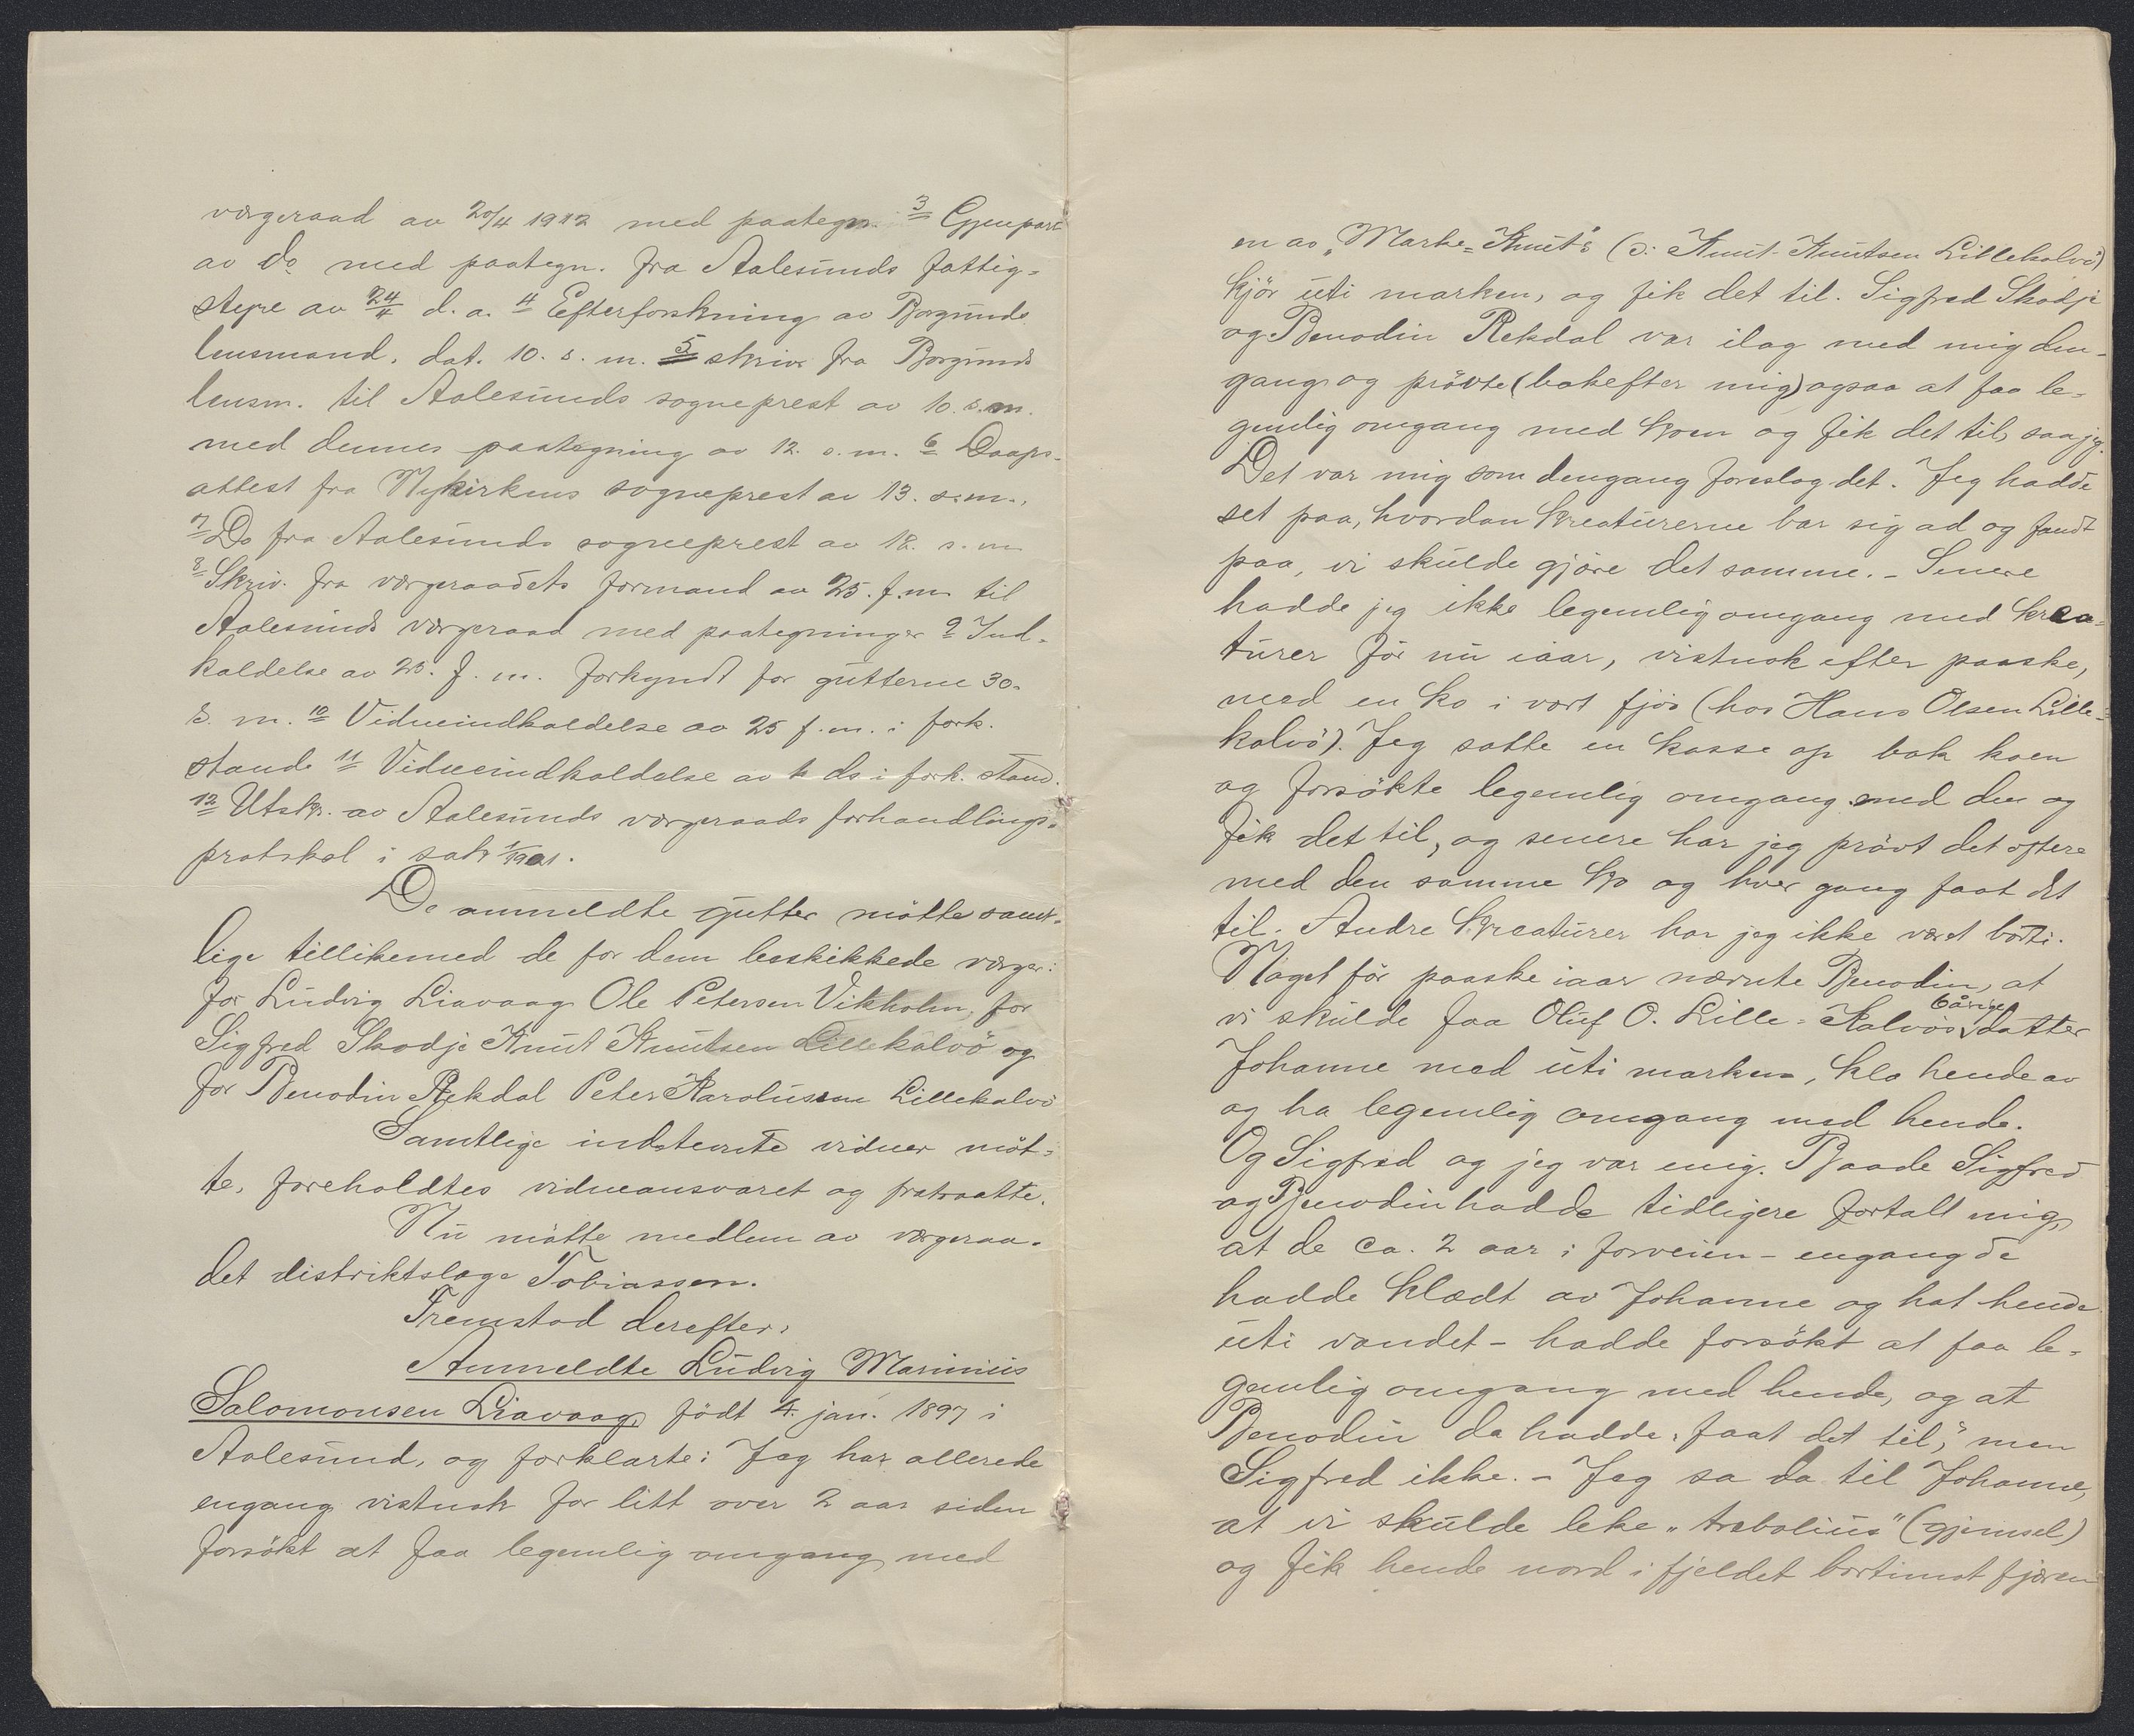 værgeraad av 20/4 1912 med paategn. 3 Gjenpart
av do med paategn. fra Aalesunds fattig-
styre av 24/4 d. a. 4 Efterforskning av Borgunds
lensmand, dat. 10. s. m. 5 skriv fra Borgunds
lensm. til Aalesunds sogneprest av 10. s. m.
med dennes paategning av 12. s. m. 6 Daaps-
attest fra Nykirkens sogneprest av 13. s. m.,
7 Do fra Aalesunds sogneprest av 18. s. m
8 Skriv. fra værgeraadets formand av 25. f. m. til
Aalesunds værgeraad med paategninger 9 Ind-
kaldelse av 25. f. m. forkyndt for gutterne 30.
s. m. 10 Vidneindkaldelse av 25 f. m. i fork.
stande 11 Vidneindkaldelse av ds i fork. stand.
12 Utskr. av Aalesunds værgeraads forhandlings-
protokol i sak
De anmeldte gutter møtte samt-
lige tillikemed de for dem beskikkede værger:
for Ludvig Liavaag Ole Petersen Vikholm, for
Sigfred Skodje Knut Knutsen Lillekalvö og
for Benodin Rekdal Peter Karolussen Lillekalvö
Samtlige indstevnte vidner möt-
te, foreholdtes vidneansvaret og fratraatte.
Nu mötte medlem av værgeraa-
det distriktslæge Tobiassen.
Fremstod derefter:
Anmeldte Ludvig Marinius
Salomonsen Liavaag, födt 4. jan. 1897 i
Aalesund, og forklarte: Jeg har allerede
engang vistnok for litt over 2 aar siden
forsökt at faa legemlig omgang med
en av „Marke-Knut's (ɔ: Knut Knutsen Lillekalvö)
kjör uti marken, og fik det til. Sigfred Skodje
og Benodin Rekdal var ilag med mig den-
gang og prövte (bakefter mig) ogsaa at faa le-
gemlig omgang med koen og fik det til, saa jeg.
Det var mig som dengang foreslog det. Jeg hadde
set paa, hvordan kreaturerne bar sig ad og fandt
paa, vi skulde gjöre det samme. – Senere
hadde jeg ikke legemlig omgang med krea-
turer för nu iaar, vistnok efter paaske,
med en ko i vort fjös (hos Hans Olsen Lille-
kalvö). Jeg satte en kasse op bak koen
og forsökte legemlig omgang med den og
fik det til, og senere har jeg prövt det oftere
med den samme ko og hver gang faat det
til. Andre kreaturer har jeg ikke været borti.
Noget för paaske iaar nævnte Benodin, at
vi skulde faa Oluf O. Lille-Kalvös 6 årige datter
Johanne med uti marken, klæ hende av
og ha legemlig omgang med hende.
Og Sigfred og jeg var enig. Baade Sigfred
og Benodin hadde tidligere fortalt mig,
at de ca. 2 aar i forveien – engang de
hadde klædt av Johanne og hat hende
uti vandet – hadde forsökt at faa le-
gemlig omgang med hende, og at
Benodin da hadde „faat det til", men
Sigfred ikke. – Jeg sa da til Johanne,
at vi skulde leke „trebolius" (gjemsel)
og fik hende nord i fjeldet bortimot fjæren